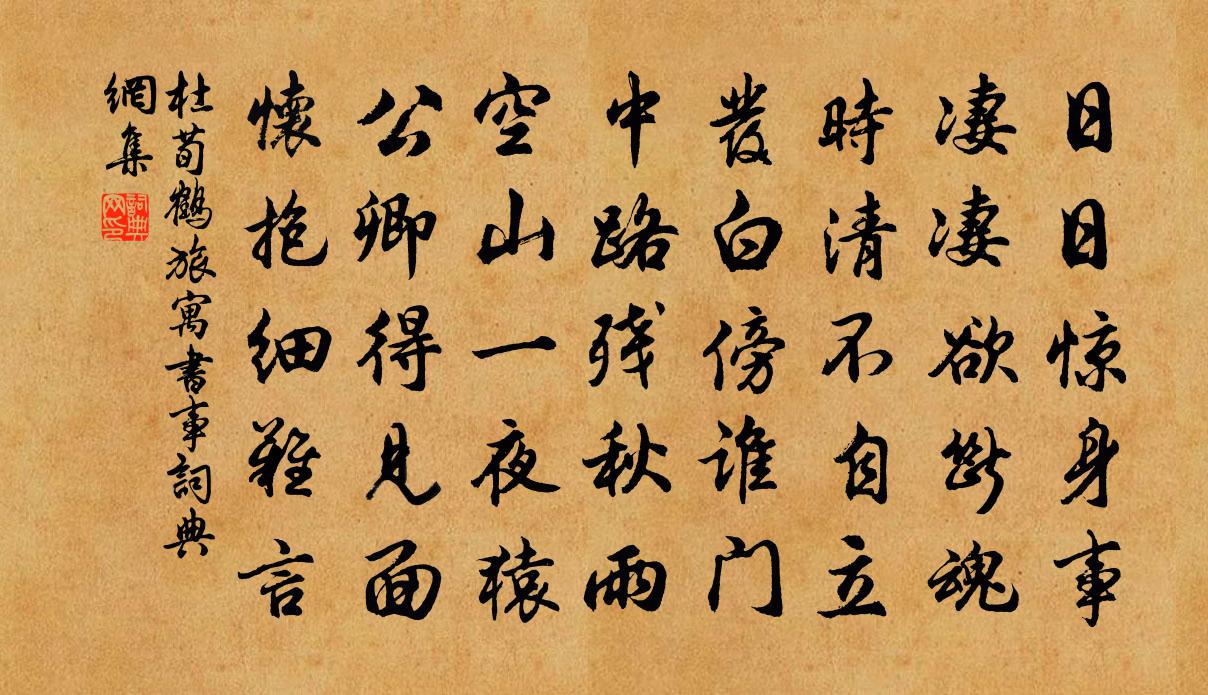 日日惊身事
凄凄欲断魂
時清不自立
发白傍谁门
中路残秋雨
空山一夜猿
公卿得见面
懷抱细難言
杜荀鶴旅寓書事詞典
網集
詞典
网印